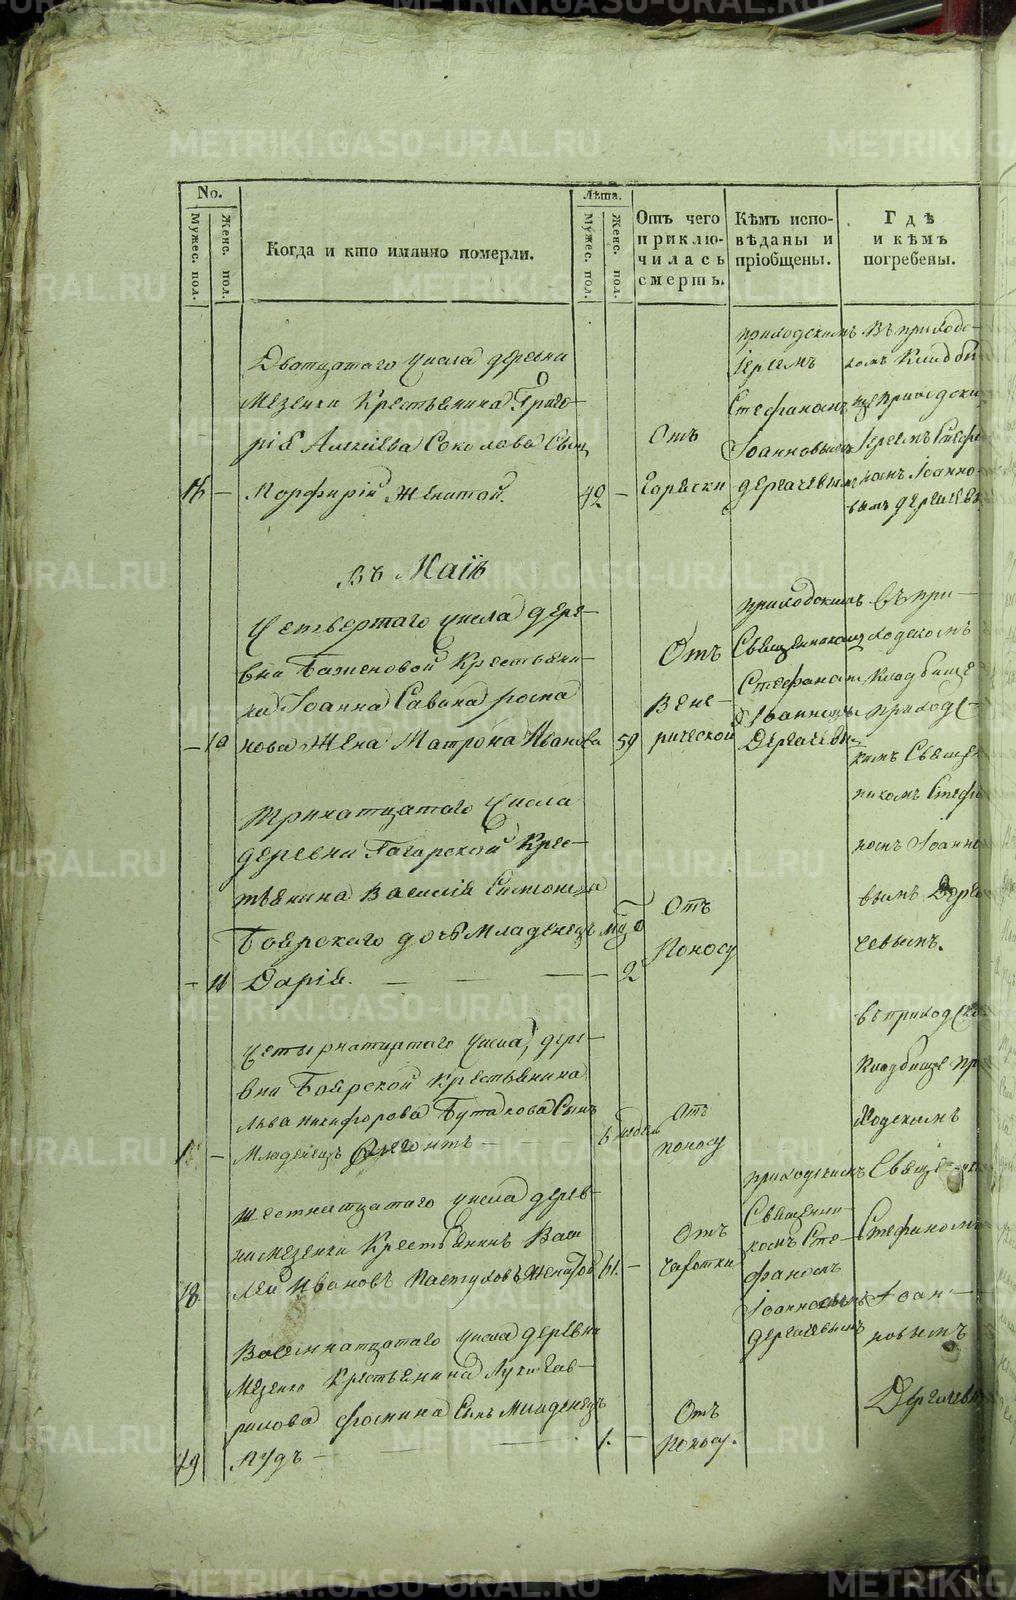 No.
Мужес. пол.
Женс. пол.
Когда и кто имянно померли.
Лѣта.
Мужес. пол.
Женс. пол.
Отъ чего
приклю-
чилась
смерть.
Кѣмъ испо-
вѣданы и
пріобщены.
Гдѣ
и кѣмъ
погребены.
Дватцатаго числа деревни
Мезенки Крестьянина Григо-
рія Алексѣева Соколова Сынъ
16 — Морфирій Женатой. 42 —
Отъ
Горячки
приходскимъ
Іереемъ
Стефаномъ
Іоанновымъ
Дергачевымъ
въ приходс-
комъ Кладби
ще приходски
Іереемъ Стефа
номъ Іоанно-
вымъ Дергачев
въ Маіѣ
Четвертаго числа дере-
вни Баженовой Крестьяни-
на Іоанна Савина
— 10 нова Жена Матрона Иванова 59
Отъ
Вене-
рической
приходскимъ
Священникомъ
Стефаномъ
Іоанновы
Дергачевы
въ при-
ходскомъ
Кладбище
приходс-
кимъ Священ
никомъ Стефа
номъ Іоанно
вымъ Дерга
чевымъ.
Тринатцатаго числа
деревни Гагарской Крес-
тьянина Василія Симонова
Боярского дочь Младенецъ
— 11 Дарія. — — — 2
Отъ
Поносу
Четырнатцатаго числа, дере-
вни Боярской Крестьянина
Льва Никифорова Бутакова Сынъ
Младенецъ 6 недель
Отъ
поносу
въ приходско
Кладбище при
ходскимъ
Свяще
Стефаномъ
Іоан-
новымъ
Дергачевы
Шестнатцатаго числа дерев-
ни Мезенки Крестьянинъ Васи
18 лей Ивановъ Пастуховъ Женатой 61. —
Отъ
Чахотки
приходскимъ
Священни-
комъ Сте-
фаномъ
Іоанновымъ
Дергачевымъ
Восемнатцатаго числа деревни
Мезенки Крестьянина Луки Гав-
рилова Фомина Сынъ Младенецъ
19 Пудъ — 1. —
Отъ
поносу.
METRIKI.GASO-URAL.RU